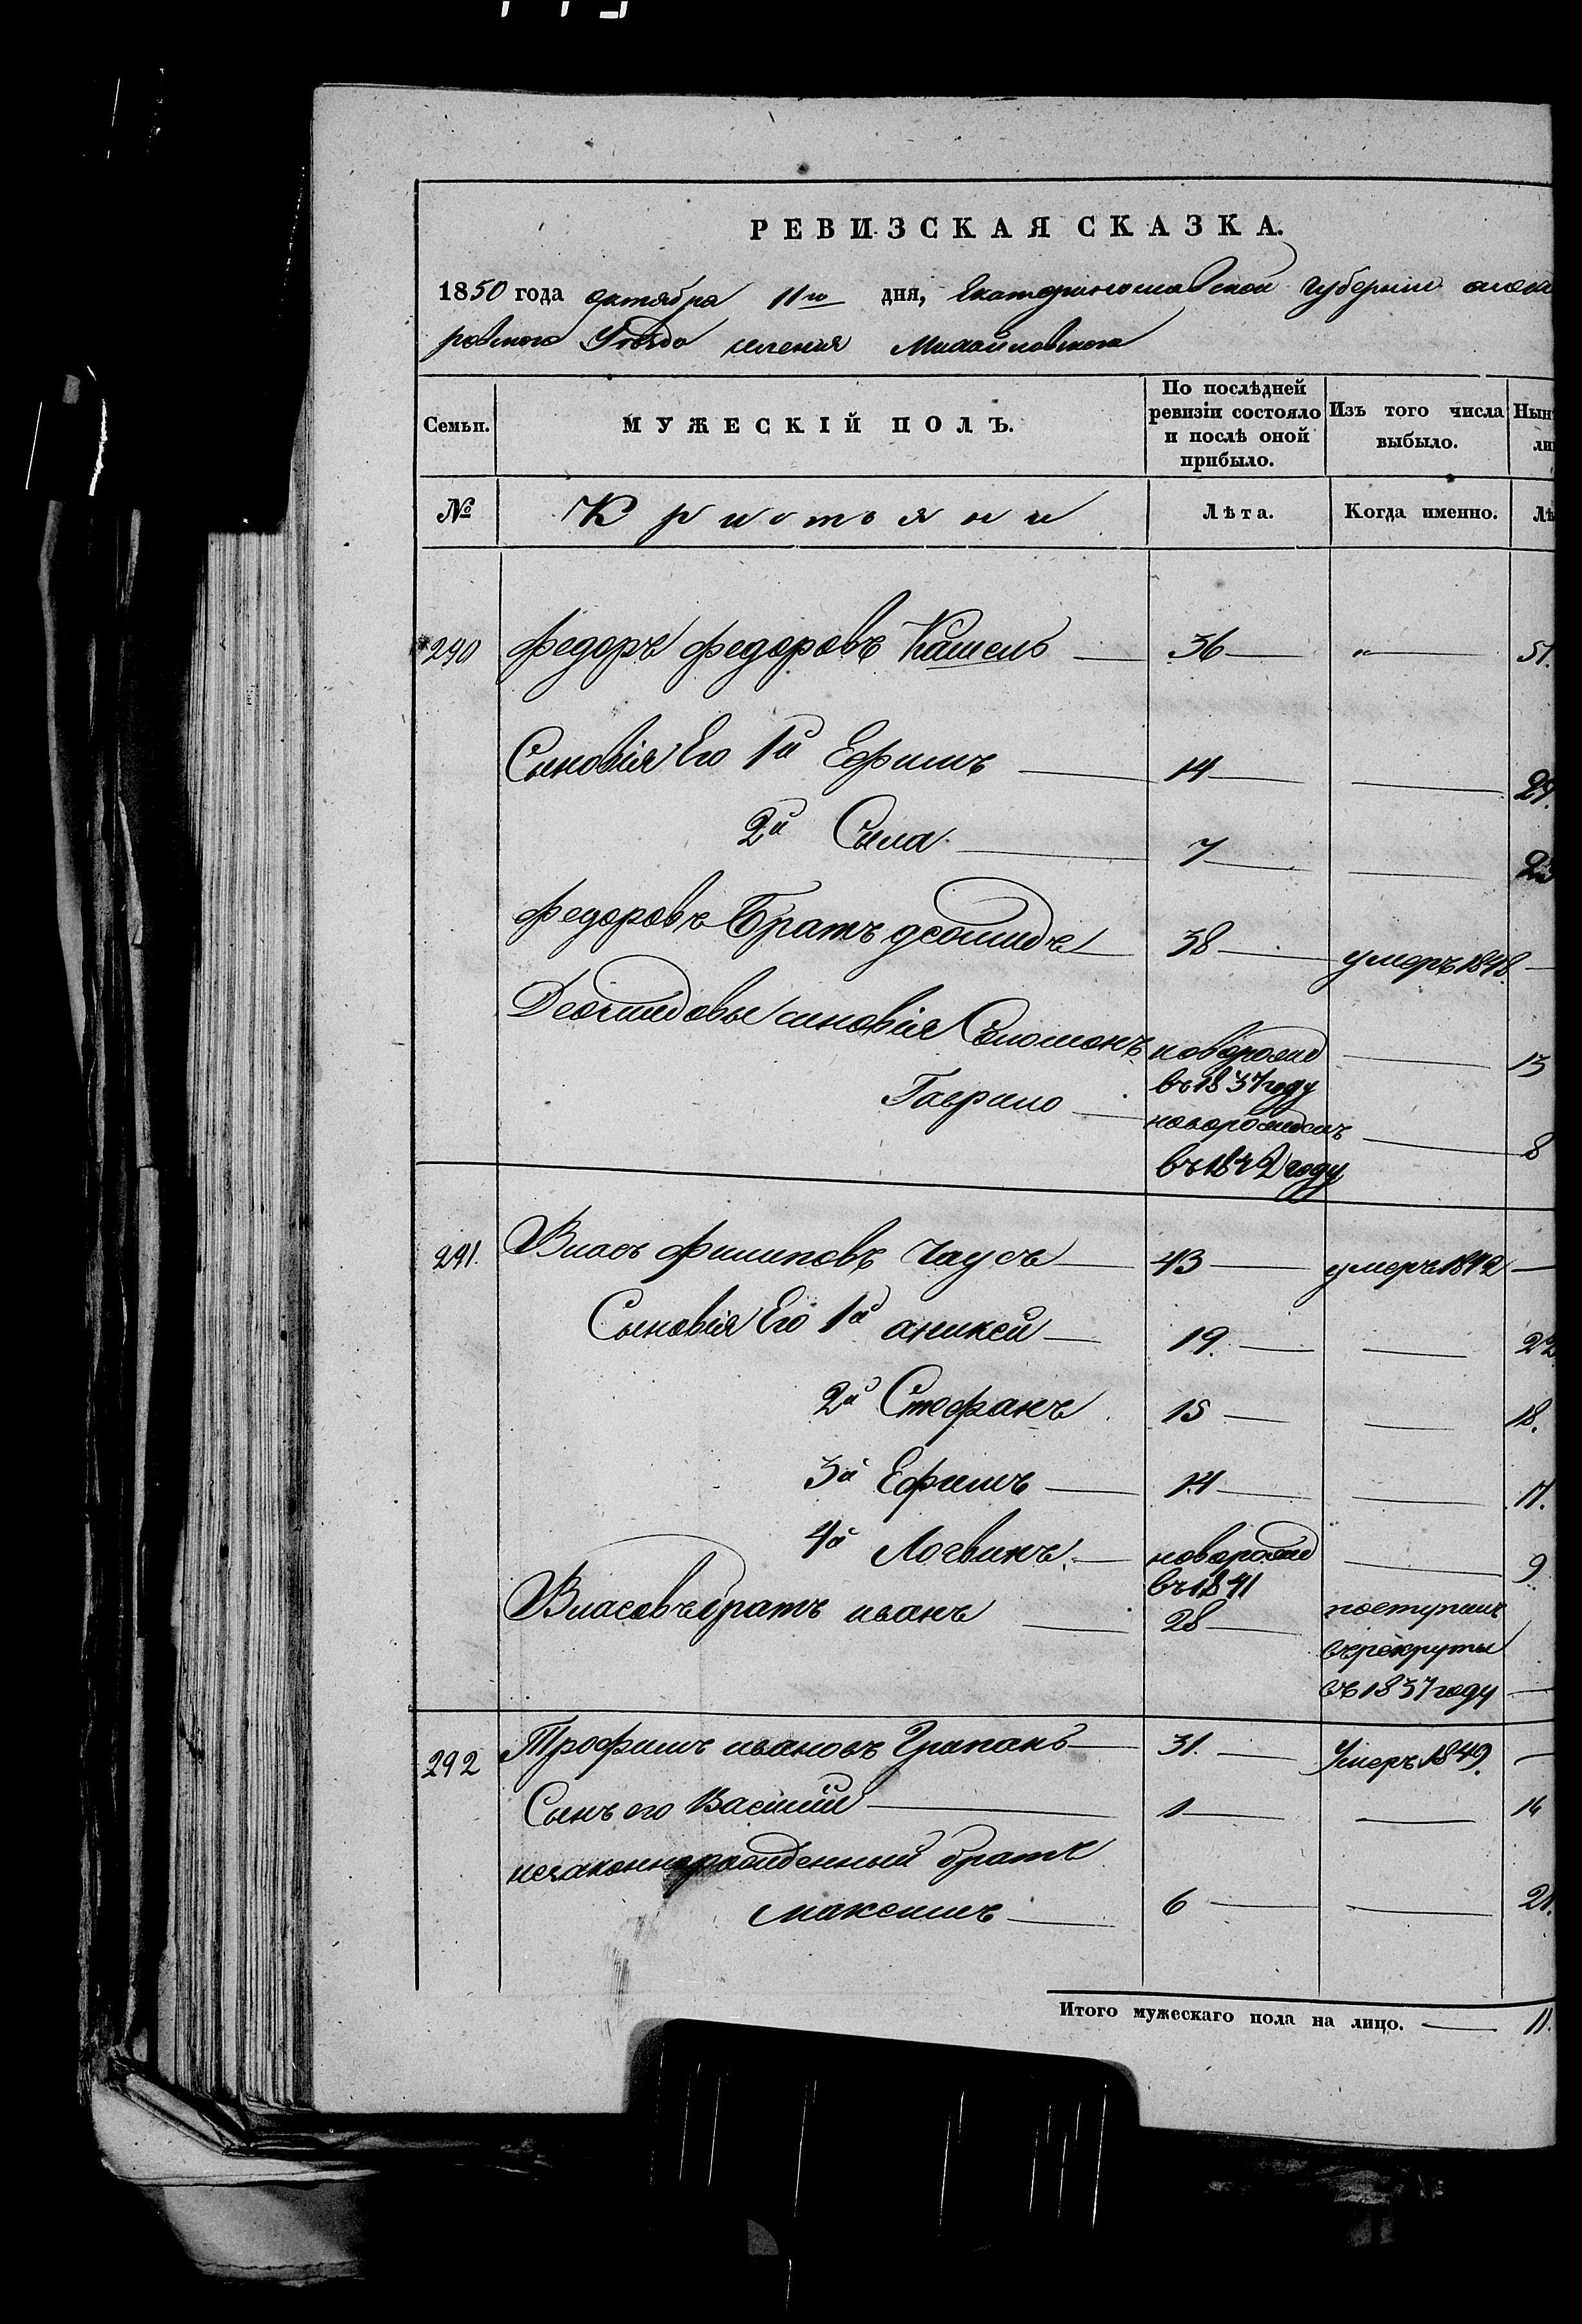 РЕВИЗСКАЯ СКАЗКА.
1850 года октября 11го дня, Екатеринославской Губернии алекс
ровского Уезда селения Михайловского
Семьи. МУЖЕСКІЙ ПОЛЪ. По послѣдней ревизіи состояло и послѣ оной прибыло. Изъ того числа выбыло. Нын
№ Кристъяни Лѣта. Когда именно. Лѣ
290 Федоръ Федоровъ Кашель 36 " 51.
Сыновія Его 1й Ефимъ 14 29.
2й Сила 7 22
Федоровъ Братъ деомидъ 38 умеръ 1848.
Деомидовы синовія Соломонъ новорожд 13
въ 1837 году
Гаврило новорожденъ 8
въ 1842 году
291. Власъ Филиповъ Чаусъ 43 умеръ 1842
Сыновія Его 1й аникей 19. 22
2й Стефанъ 15 18.
3й Ефимъ 14 17.
4й Логвинъ новорожд 9
въ 1841
Власовъ братъ иванъ 28 поступилъ
въ рекруты
въ 1837 году
292 Трофимъ ивановъ 31. Умеръ 1849.
Сынъ его Василий 1 16
незаконнорожденный братъ
максимъ 6 21.
Итого мужескаго пола на лицо. 11.